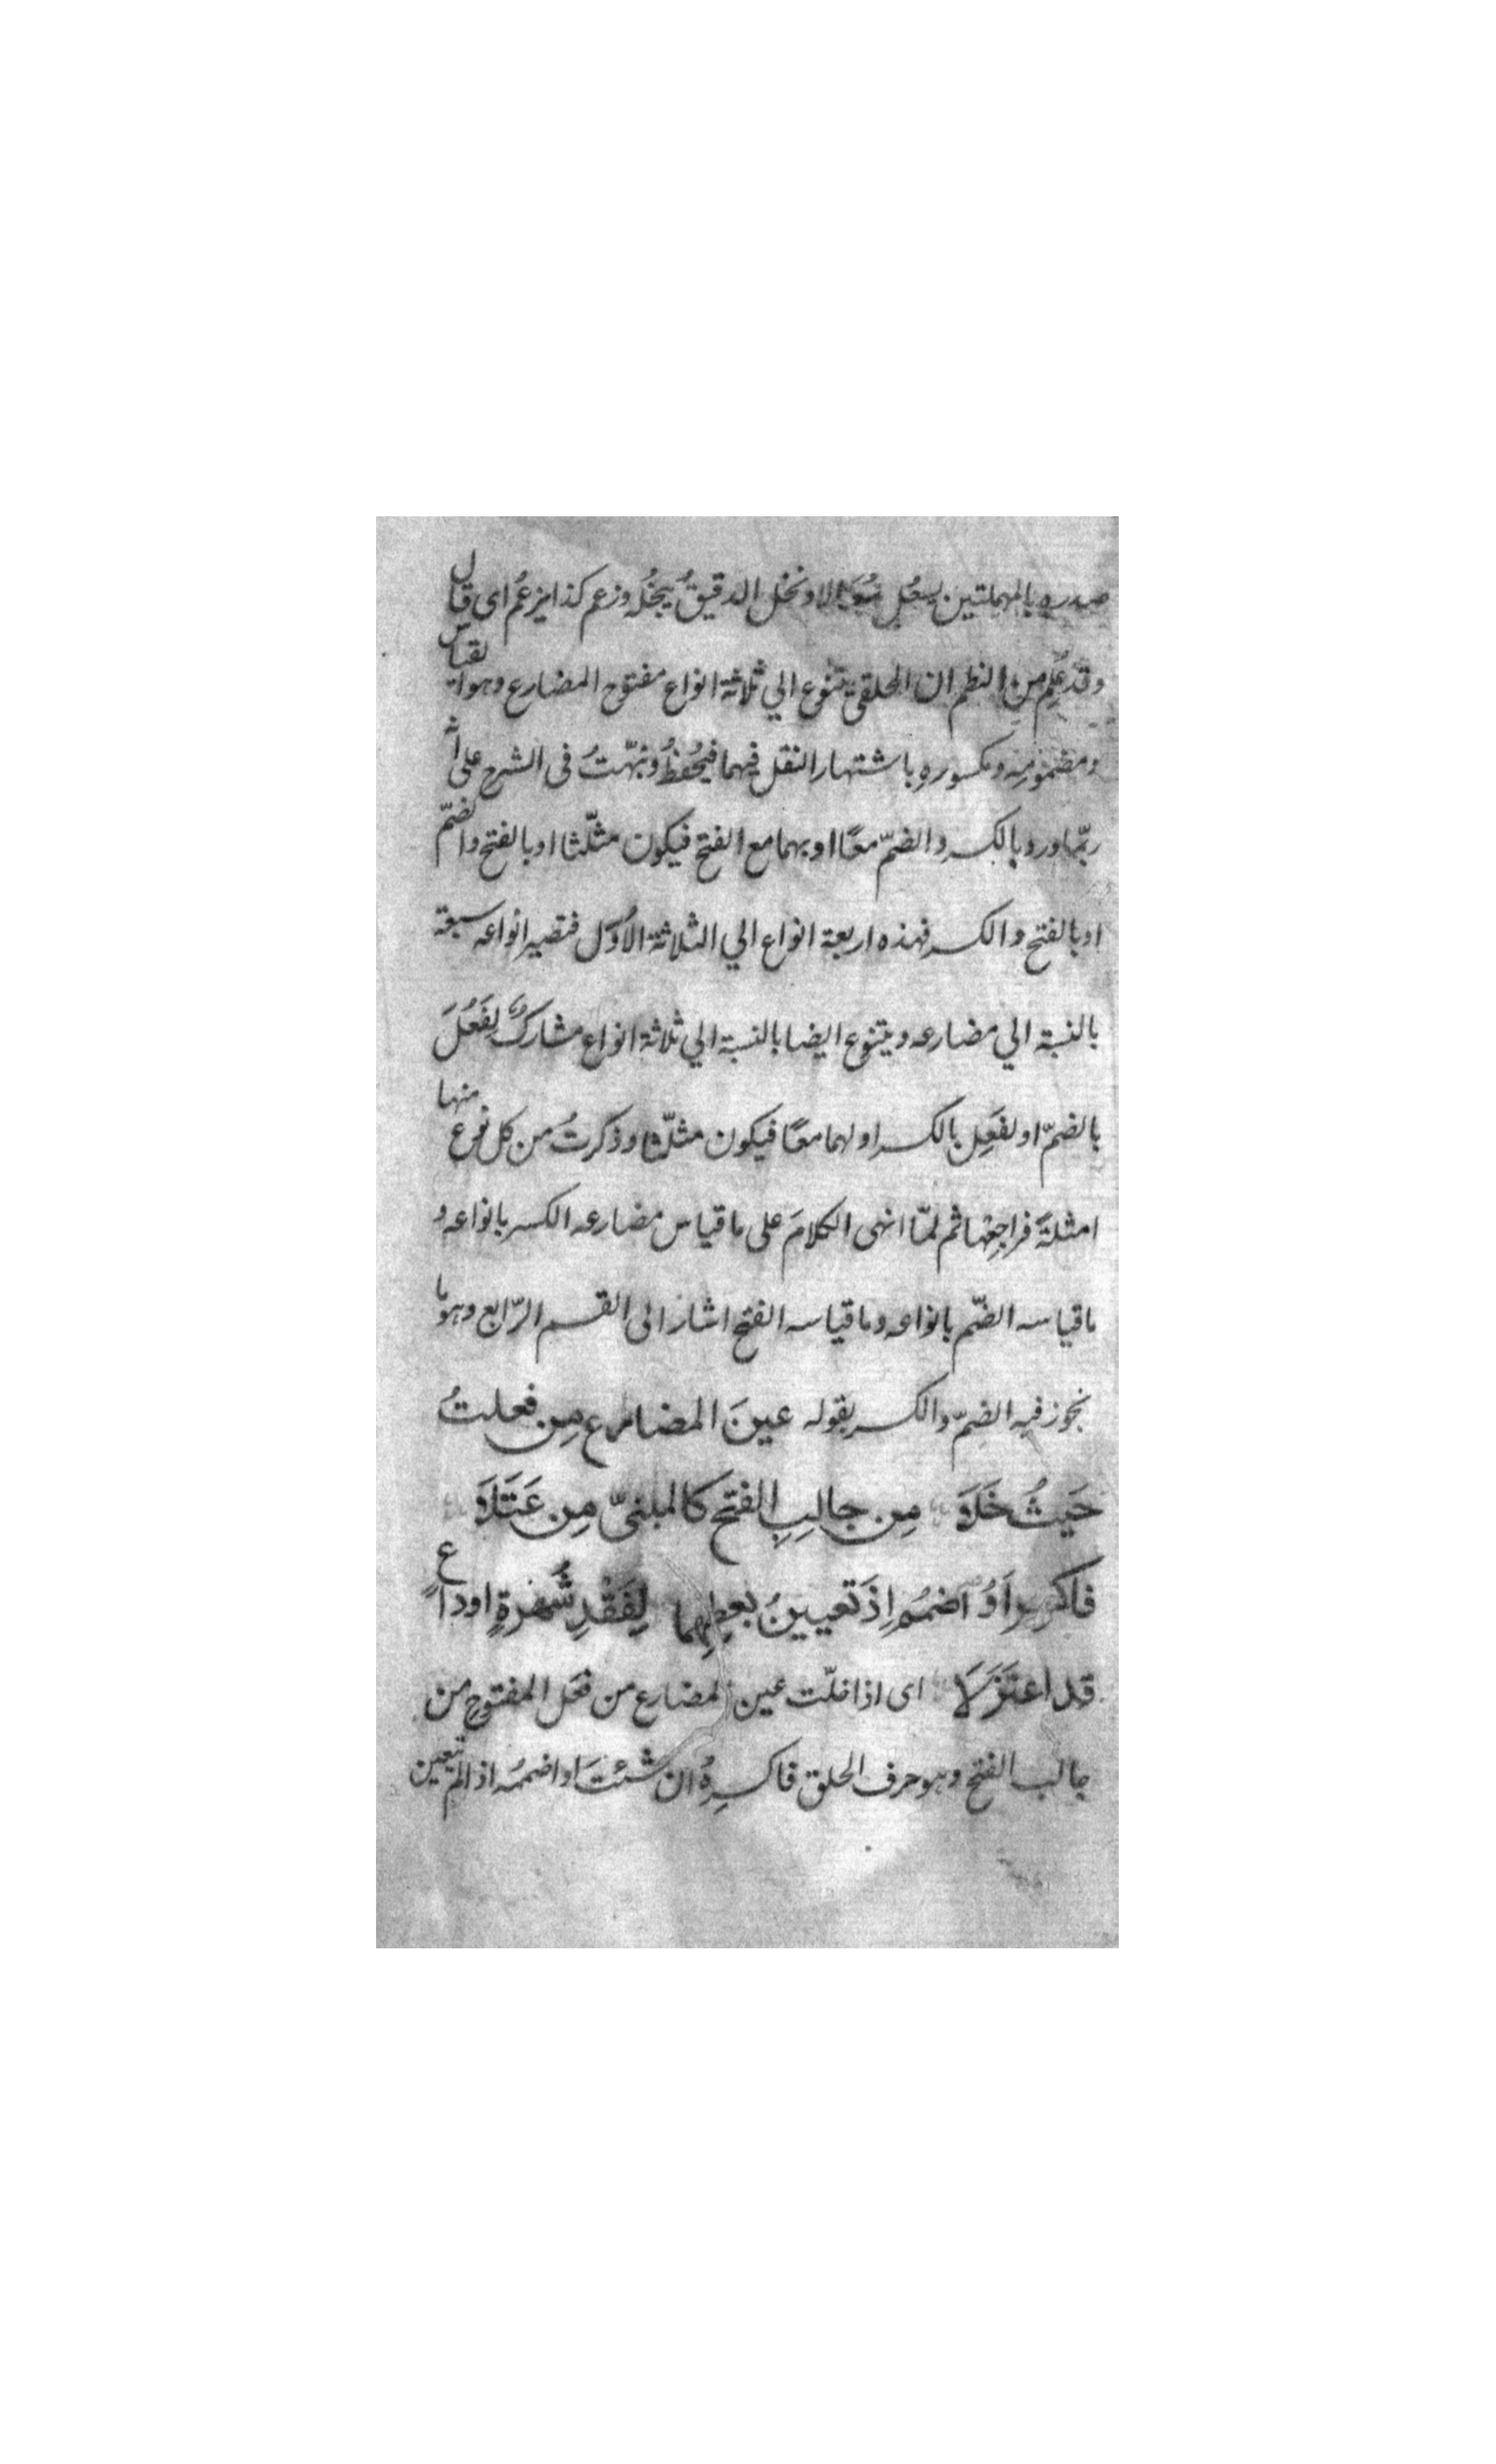 صدره بالمهملتين يسعُل سُعالا ونخل الدقيقُ ينخُله وزعم كذا يزعُم اى قال
وقد عُلِم من النظم ان الحلقى يتنوع الي ثلاثة انواع مفتوح المضارع وهو القياس
ومضمومِه ومكسورِهِ باشتهار النقل فيهما فيُحفظُ ونبّهتُ فى الشرح على انّه
ربّما ورد بالكسر والضمّ معًا او بهما مع الفتح فيكون مثلّثا او بالفتح والضمّ
او بالفتح والكسر فهذه اربعة انواع الي الثلاثة الاُوَل فتصير انواعه سبعة
بالنسبة الي مضارعه ويتنوع ايضا بالنسبة الي ثلاثة انواع مشاركٌ لِفَعُلَ
بالضمّ او لفَعِل بالكسر او لهما معًا فيكون مثلّثا وذكرتُ من كل نوع منها
امثلةً فراجِعْها ثم لمّا انهى الكلامَ على ما قياس مضارعه الكسر بانواعه و
ما قياسه الضّم بانواعه وما قياسه الفتح اشار الى القسم الرّابع وهو ما
نجوز فيه الضمّ والكسر بقوله عينَ المضارع مِن فعلتُ
حَيثُ خَلَا مِن جالبِ الفتح كالمبنىّ مِن عَتَلَا
فاكسِر اَوُ اضمُم اِذَ تعيينُ بعضِهِما لِفَقْدِ شُهْرةٍ او داعٍ
قد اعتَزَلَا اى اذا خلّت عين المضارع من فعَل المفتوح من
جالب الفتح وهو حرف الحلق فاكسِرهُ ان شئتَ او اضممُه اذا لم يتعين